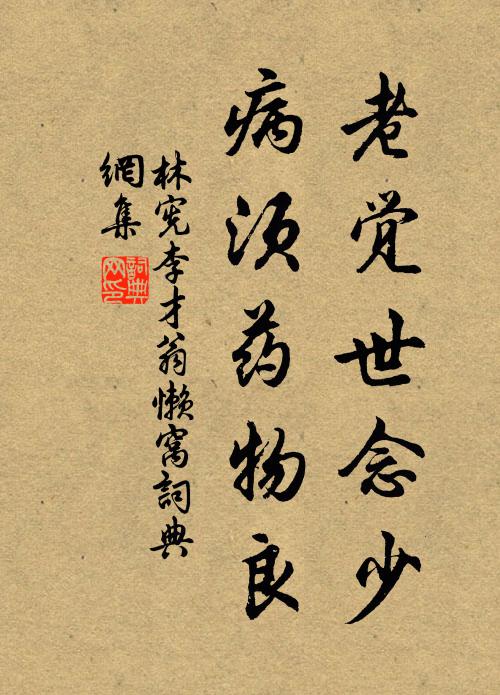 老觉世念少
病须药物良
林宪李才翁懒窝詞典
網集
詞典网印